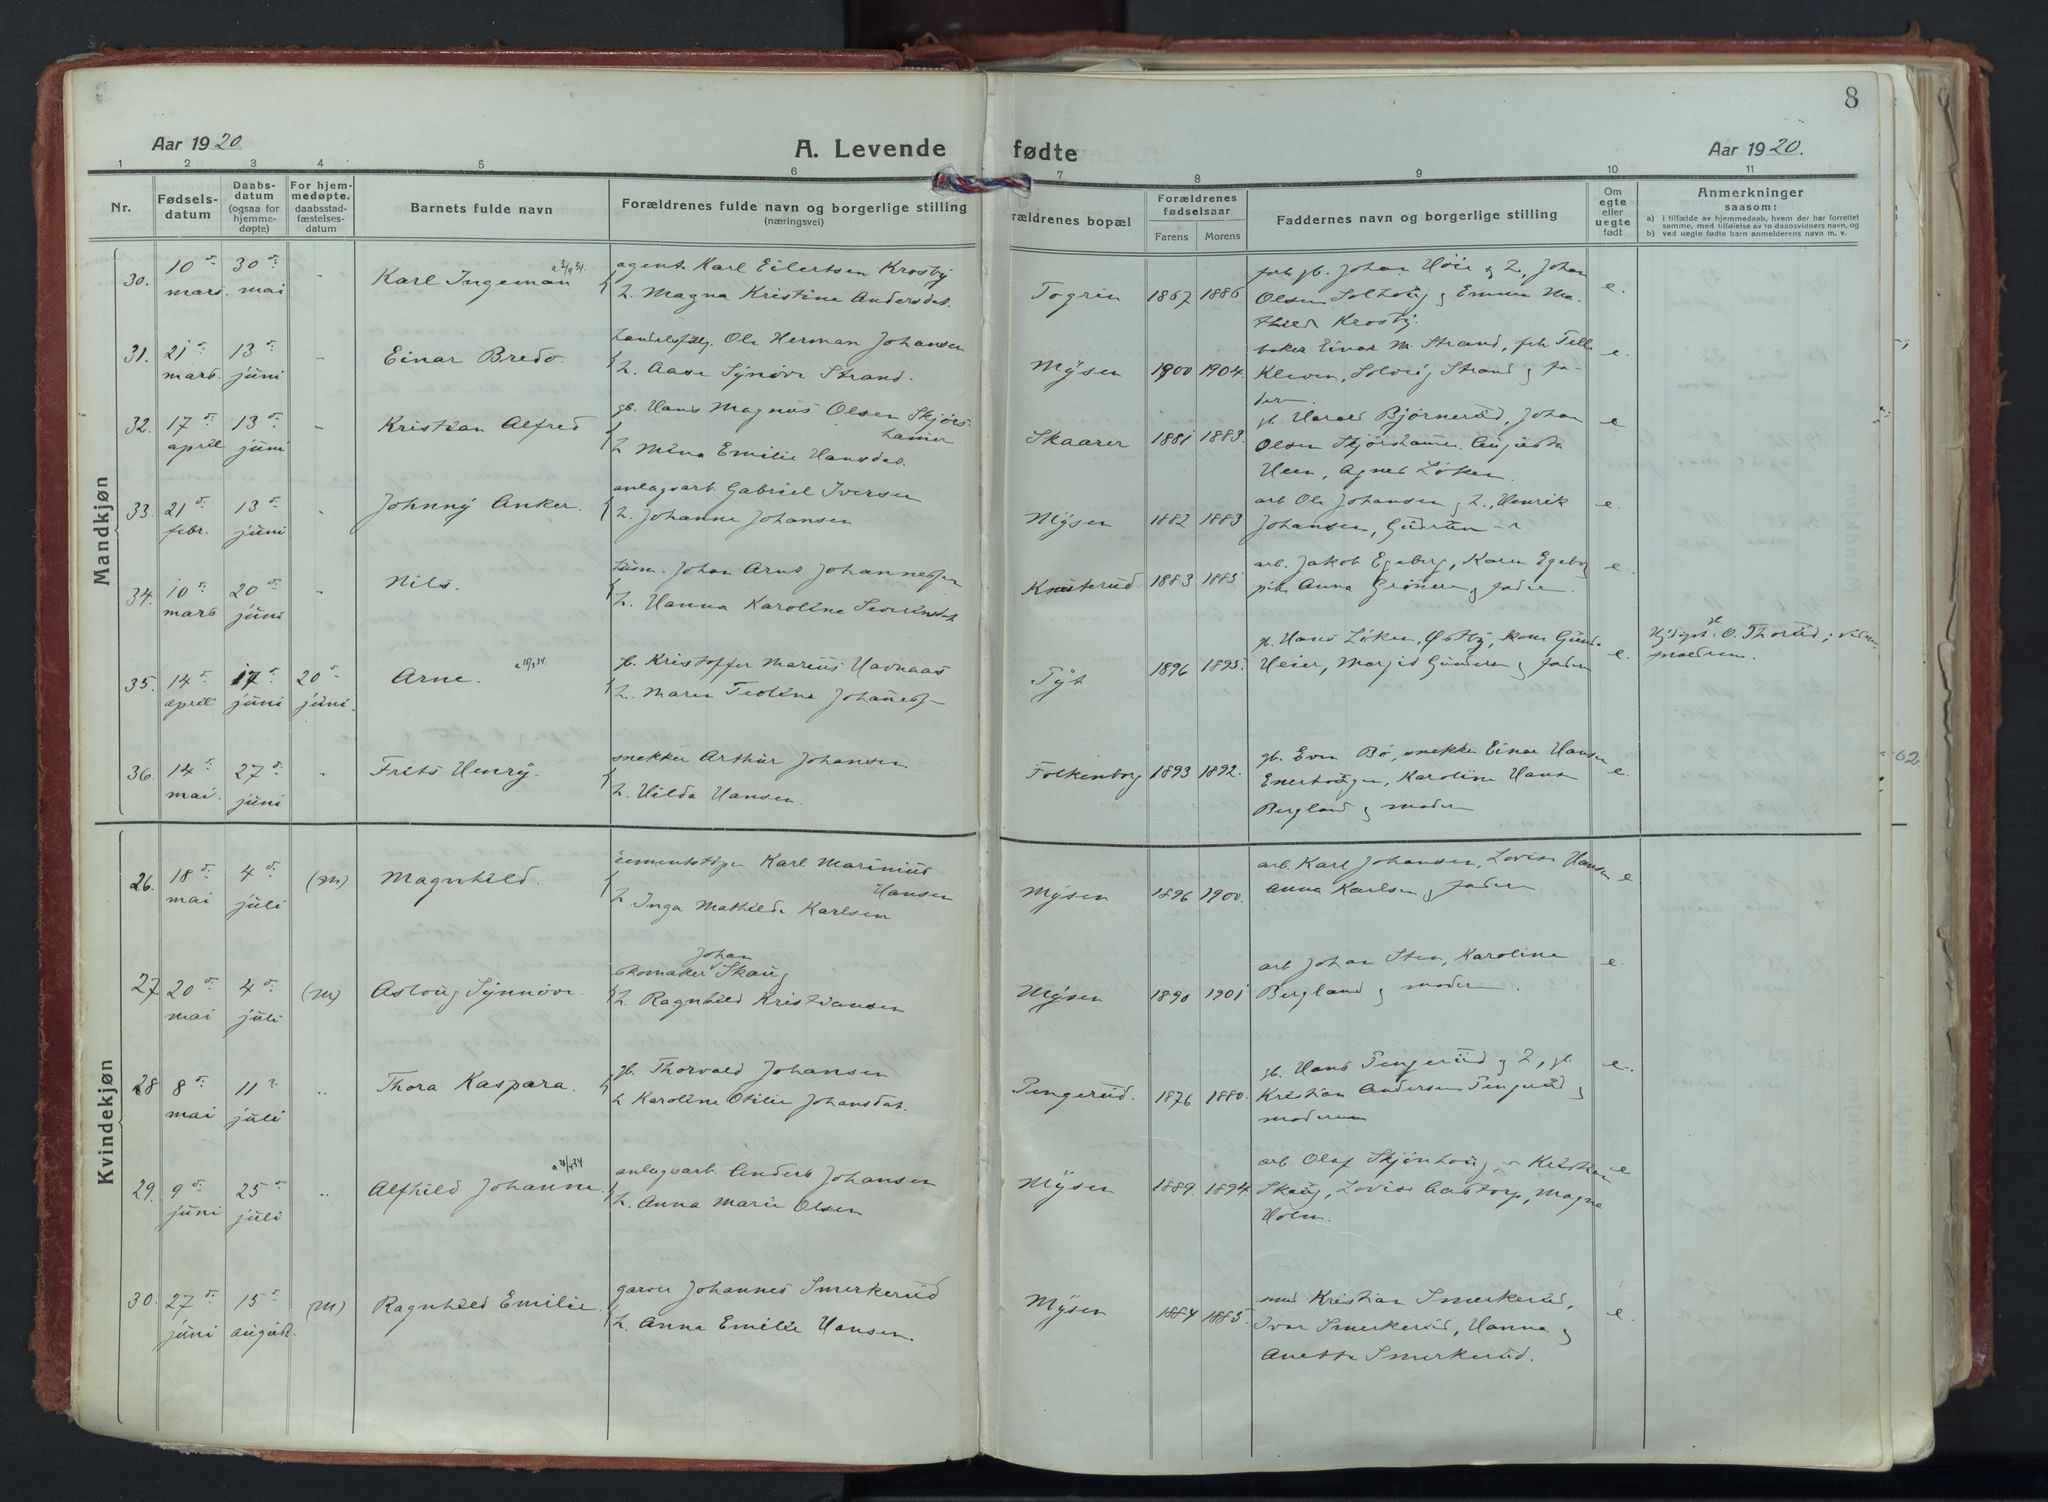 8
Aar 1920
A. Levende fødte
Aar 1920.
1 2 3 4 5 6 7 8 9 10 11
Nr.
Fødselsdatum
Daabsdatum (ogsaa for hjemmedøpte)
For hjemmedøpte, daabsstadfæstelsesdatum
Barnets fulde navn
Forældrenes fulde navn og borgerlige stilling (næringsvei)
rældrenes bopæl
Forældrenes fødselsaar
Farens Morens
Faddernes navn og borgerlige stilling
Om egte eller uegte født
Anmerkninger saasom:
a) i tilfælde av hjemmedaab, hvem der har forrettet samme, med tilføielse av to daabsvidners navn, og
b) ved uegte fødte barn anmelderens navn m. v.
Mandkjøn
30. 10 mars. 30 mai - Karl Ingeman
agent Karl Eilertsen Krosby
h. Magna Kristine Andersdat.
Togrin 1867 1886
Johan Høie og h, Johan
Olsen Solhoug og Emma Ma-
thild Krosby.
e.
31. 21 mars. 13 juni - Einar Bredo
Ole Herman Johansen
h. Aase Synøve Strand.
Mysen 1900 1904.
baker Einar M. Strand,
Kleven, Solveig Strand og fa-
deren
e.
32. 17 april 13 juni - Kristian Alfred
gb. Hans Magnus Olsen Skjørs-
hamer
h Mina Emilie Hansdat.
Skaarer 1881 1883.
gb. Harald Bjørnerud, Johan
Olsen Skjørshamer Augusta
Heen, Agnes Løken.
e
33. 21 febr. 13 juni - Johnny Anker.
anlagsarb. Gabriel Iversen
h. Johanne Johansen
Mysen 1882 1883
arb Ole Johansen og h., Henrik
Johansen, Gudrun
e.
34. 10 mars 20 juni - Nils.
Johan Arnt Johannessen
h. Hanna Karoline Severinsdat
Knusterud. 1883 1885.
arb. Jakob Egeberg, Karen Egeberg
pike Anna Grønern og faderen.
e.
35. 14 april 17 juni 20 juni. Arne.
gb. Kristoffer Marius Havnaas
h. Maren Teoline Johanness
Tyt 1896 1895.
gb. Hans Løken, Østby,
Heier, Margit Gunders og faderen
e.
O. Thorud;
moderen.
36. 14 mai. 27 juni - Frits Henry.
snekker Arthur Johansen
h. Hilda Hansen.
Folkenborg 1893 1892.
gb. Even Bø, snekker Einar Hansen
Enerhougen, Karoline Hansen
Bergland og moderen
e.
Kvindekjøn
26. 18 mai 4 juli (m) Magnhild.
cementstøper Karl Marinius
Hansen
h Inga Mathilde Karlsen
Mysen 1896 1900.
arb. Karl Johansen, Lovise Hansen
Anna Karlsen og faderen
e.
27 20 mai 4 juli (m) Aslaug Synnøve.
Johan
skomaker Skaug
h. Ragnhild Kristiansen
Mysen 1890 1901
arb Johan Sten, Karoline
Bergland og moderen.
e.
28 8 mai 11 juli " Thora Kaspara.
gb. Thorvald Johansen
h Karoline Otilie Johansdat.
Tengerud. 1876 1880.
gb. Hans Tengerud og h, gb.
Kristian Andersen Tengerud og
moderen
e.
29. 9 juni 25 juli " Alfhild Johanne
anlagsarb. Anders Johansen
h. Anna Marie Olsen
Mysen 1889. 1894.
arb Olaf Skjønhoug, Kristian
Skaug, Lovise Aastorp, Magna
Holm.
e
30. 27 juni 15 august. (m) Ragnhild Emilie.
garver Johannes Smerkerud
h. Anna Emilie Hansen.
Mysen 1884 1885.
Kristian Smerkerud,
Ivar Smerkerud, Hanna og
Anette Smerkerud.
e.
62